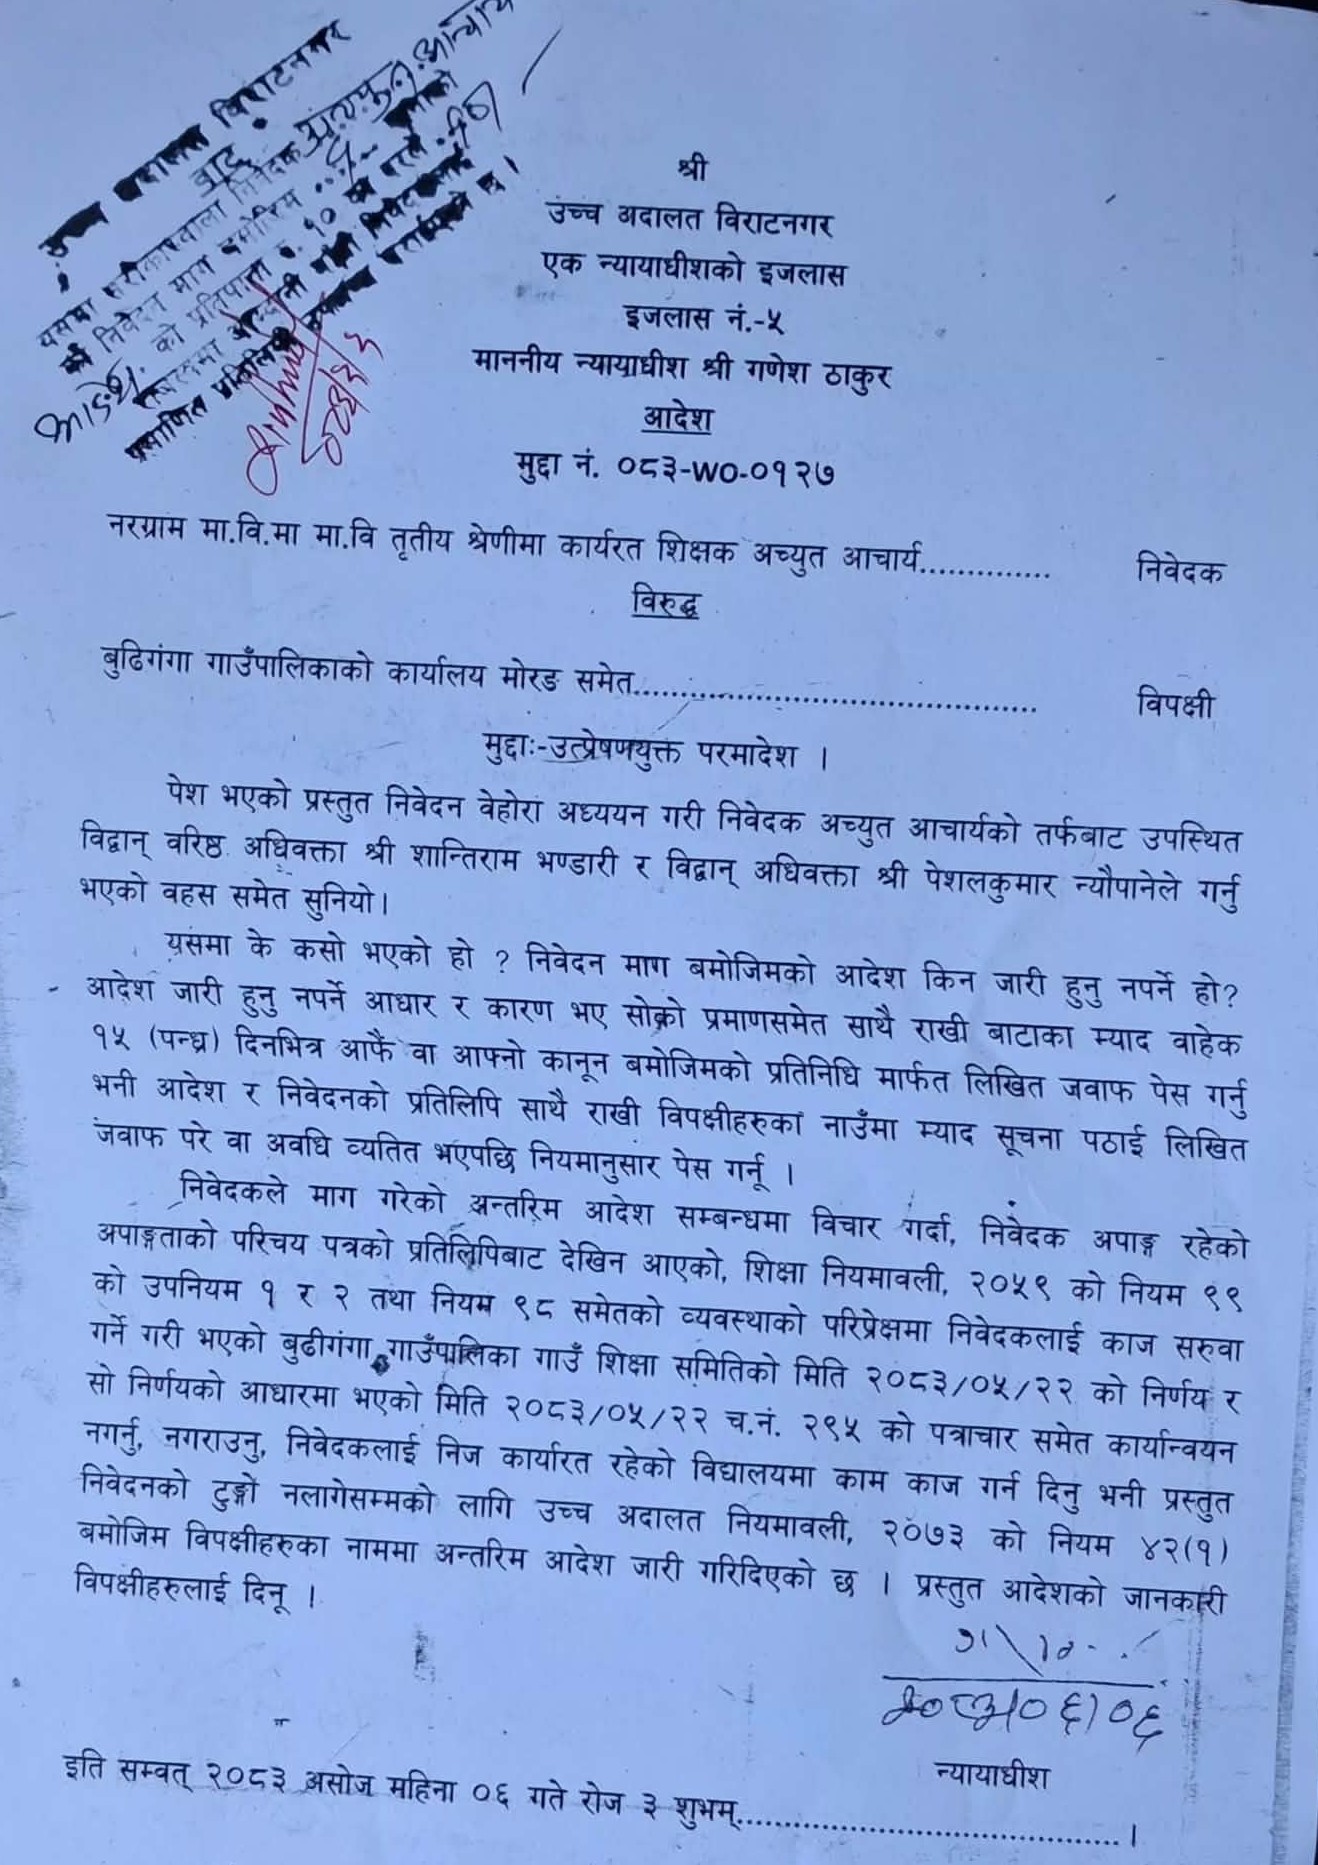 उच्च अदालत विराटनगर
बाट
यसमा सरोकारवाला निवेदक अच्युत आचार्य
को निवेदन माग बमोजिम
को प्रतिपाना रु. १० का दरले
प्रमाणित प्रतिलिपि उपलब्ध गराईएको छ ।
श्री
उच्च अदालत विराटनगर
एक न्यायाधीशको इजलास
इजलास नं.-५
माननीय न्यायाधीश श्री गणेश ठाकुर
आदेश
मुद्दा नं. ०८३-WO-०१२७
नरग्राम मा.वि.मा मा.वि तृतीय श्रेणीमा कार्यरत शिक्षक अच्युत आचार्य.............. निवेदक
विरुद्ध
बुढिगंगा गाउँपालिकाको कार्यालय मोरङ समेत............................................ विपक्षी
मुद्दाः-उत्प्रेषणयुक्त परमादेश ।
पेश भएको प्रस्तुत निवेदन वेहोरा अध्ययन गरी निवेदक अच्युत आचार्यको तर्फबाट उपस्थित
विद्वान् वरिष्ठ अधिवक्ता श्री शान्तिराम भण्डारी र विद्वान् अधिवक्ता श्री पेशलकुमार न्यौपानेले गर्नु
भएको वहस समेत सुनियो।
यसमा के कसो भएको हो ? निवेदन माग बमोजिमको आदेश किन जारी हुनु नपर्ने हो?
आदेश जारी हुनु नपर्ने आधार र कारण भए सोको प्रमाणसमेत साथै राखी बाटाका म्याद वाहेक
१५ (पन्ध्र) दिनभित्र आफैं वा आफ्नो कानून बमोजिमको प्रतिनिधि मार्फत लिखित जवाफ पेस गर्नु
भनी आदेश र निवेदनको प्रतिलिपि साथै राखी विपक्षीहरुका नाउँमा म्याद सूचना पठाई लिखित
जवाफ परे वा अवधि व्यतित भएपछि नियमानुसार पेस गर्नू ।
निवेदकले माग गरेको अन्तरिम आदेश सम्बन्धमा विचार गर्दा, निवेदक अपाङ्ग रहेको
अपाङ्गताको परिचय पत्रको प्रतिलिपिबाट देखिन आएको, शिक्षा नियमावली, २०५९ को नियम ९९
को उपनियम १ र २ तथा नियम ९८ समेतको व्यवस्थाको परिप्रेक्षमा निवेदकलाई काज सरुवा
गर्ने गरी भएको बुढीगंगा गाउँपालिका गाउँ शिक्षा समितिको मिति २०८३/०५/२२ को निर्णय र
सो निर्णयको आधारमा भएको मिति २०८३/०५/२२ च.नं. २९५ को पत्राचार समेत कार्यान्वयन
नगर्नु, नगराउनु, निवेदकलाई निज कार्यारत रहेको विद्यालयमा काम काज गर्न दिनु भनी प्रस्तुत
निवेदनको टुङ्गो नलागेसम्मको लागि उच्च अदालत नियमावली, २०७३ को नियम ४२(१)
बमोजिम विपक्षीहरुका नाममा अन्तरिम आदेश जारी गरिदिएको छ । प्रस्तुत आदेशको जानकारी
विपक्षीहरुलाई दिनू ।
२०८३।०६।०६
न्यायाधीश
इति सम्वत् २०८३ असोज महिना ०६ गते रोज ३ शुभम्.......................................... ।